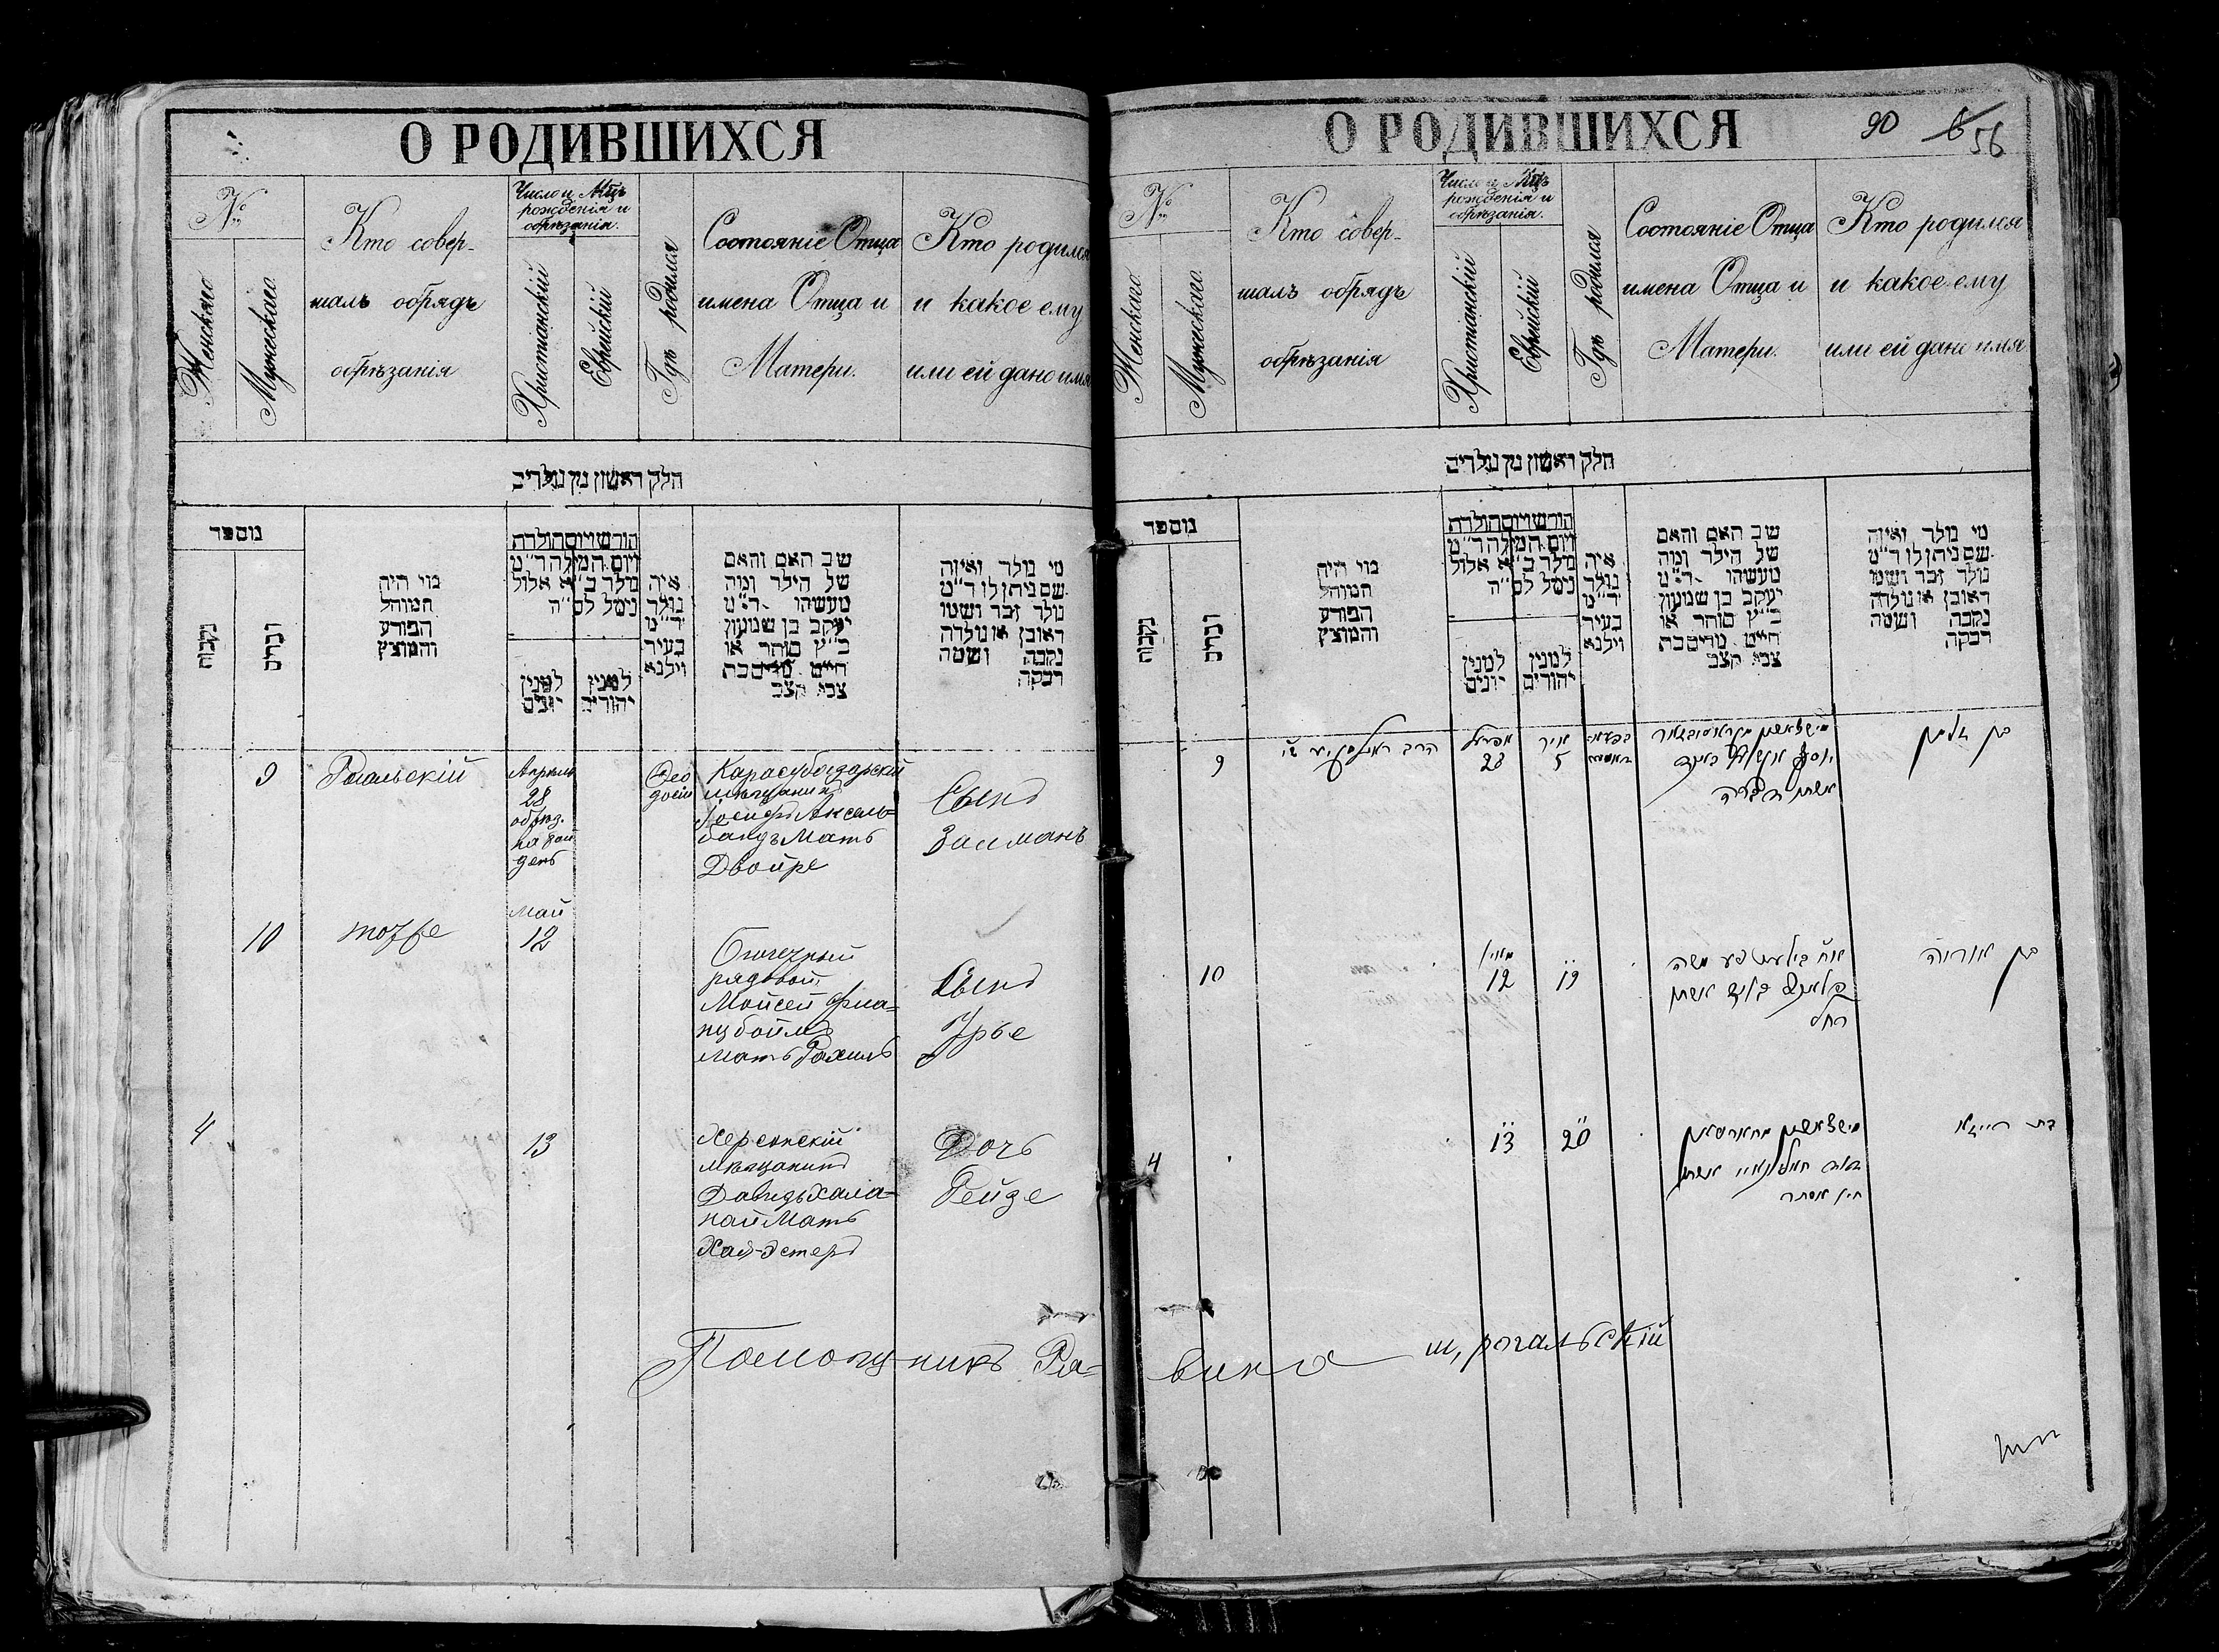 О РОДИВШИХСЯ
№
Женскаго
Мужескаго
Кто совер-
шалъ обрядъ
обрѣзанія
Число и Мцъ
рожденія и
обрѣзанія.
Христіанскій
Еврейскій
Гдѣ родился
Состояніе Отца
имена Отца и
Матери.
Кто родился
и какое ему
или ей дано имя
חלק ראשון מן נולדים
מספר
נקבות
זכרים
מי היה
המוהל
הפורע
והמוצץ
חודש ויום הולדת
ויום המילה ד״מ
נולד ב״א אלול
נימל לס״ה
למנין
יונים
למנין
יהודים
איה
נולד
ד״מ
בעיר
וילנא
שם האב והאם
של הילד ומה
מעשהו ד״מ
יעקב בן שמעון
כ״ץ סוחר או
חייט מרים בת
צבי קצב
מי נולד ואיזה
שם ניתן לו ד״מ
נולד זכר ושמו
ראובן או נולדה
נקבה ושמה
רבקה
9
Рогальскій
Апрѣль
28
обрѣз.
на 8ой
день
Фео
досіи
Карасубазарскій
мѣщанинъ
Іосифъ Ансель-
бандъ Мать
Двойре
Сынъ
Залманъ
10
тоже
Май
12
рядовой
Мойсей Фла-
нцбоймъ
мать Рахиль
Сынъ
Урье
4
13
Херсонскій
мѣщанинъ
Давидъ Хала-
най Мать
Хая-Эстеръ
Дочь
Рейзе
Помощникъ Ра-
О РОДИВШИХСЯ
90
56
№
Женскаго
Мужескаго.
Кто совер-
шалъ обрядъ
обрѣзанія
Число и Мцъ
рожденія и
обрѣзанія.
Христіанскій
Еврейскій
Гдѣ родился
Состояніе Отца
имена Отца и
Матери.
Кто родился
и какое ему
или ей дано имя
חלק ראשון מן נולדים
מספר
נקבות
זכרים
מי היה
המוהל
הפורע
והמוצץ
חודש ויום הולדת
ויום המילה ד״מ
נולד ב״א אלול
נימל לס״ה
למנין
יונים
למנין
יהודים
איה
נולד
ד״מ
בעיר
וילנא
שם האב והאם
של הילד ומה
מעשהו ד״מ
יעקב בן שמעון
כ״ץ סוחר או
חייט מרים בת
צבי קצב
מי נולד ואיזה
שם ניתן לו ד״מ
נולד זכר ושמו
ראובן או נולדה
נקבה ושמה
רבקה
9
הרב
אפריל
28
אייר
5
יוסף
אשתו דבורה
בן זלמן
10
מאי
12
19
משה
אשתו
רחל
בן אוריה
4
13
20
דוד אשתו
חיה אסתר
בת רייזא
вина ш, рогальскій